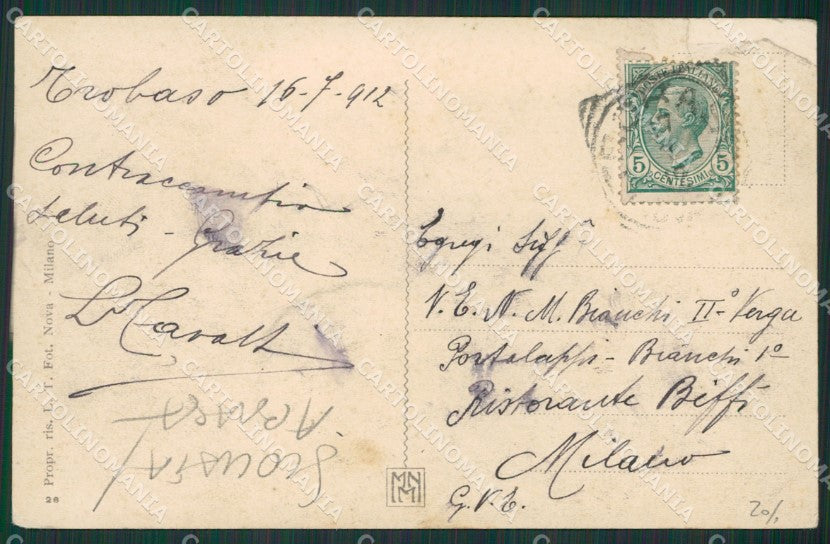 Trobaso 16-7-912
Contraccambio
saluti - Grazie
L Cavalli
Propr. ris. L. T. Fot. Nova - Milano
28
MNM
POSTE ITALIANE
5 CENTESIMI 5
Egregi Sigg.ri
V. E. N. M. Bianchi II° Verga
Portaluppi - Bianchi 1°
Ristorante Biffi
Milano
G.V.E.
20/1
CARTOLINOMANIA